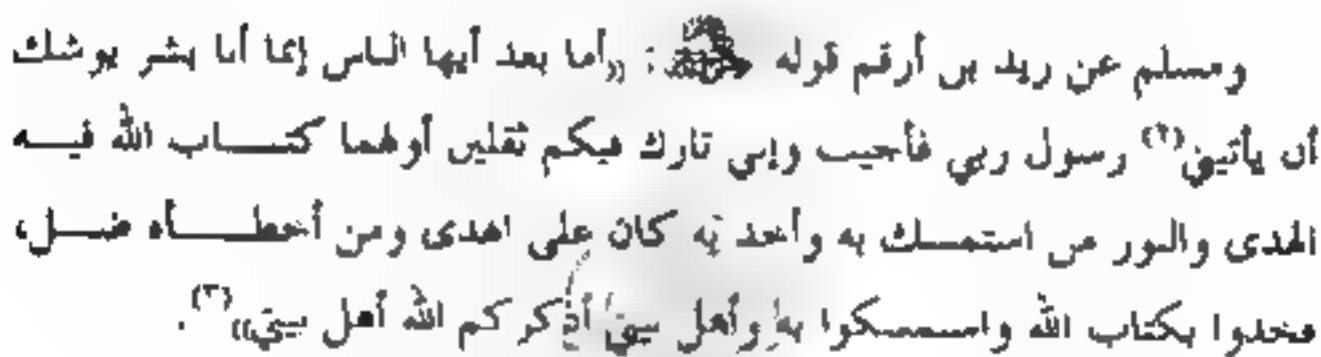 ومسلم عن زيد بن أرقم قوله ﷺ: «أما بعد أيها الناس إنما أنا بشر يوشك
أن يأتيني(٢) رسول ربي فأجيب وإني تارك فيكم ثقلين أولهما كتاب الله فيه
الهدى والنور من استمسك به وأخذ به كان على الهدى ومن أخطأه ضل،
فخذوا بكتاب الله واستمسكوا به وأهل بيتي أذكركم الله أهل بيتي»(٣).